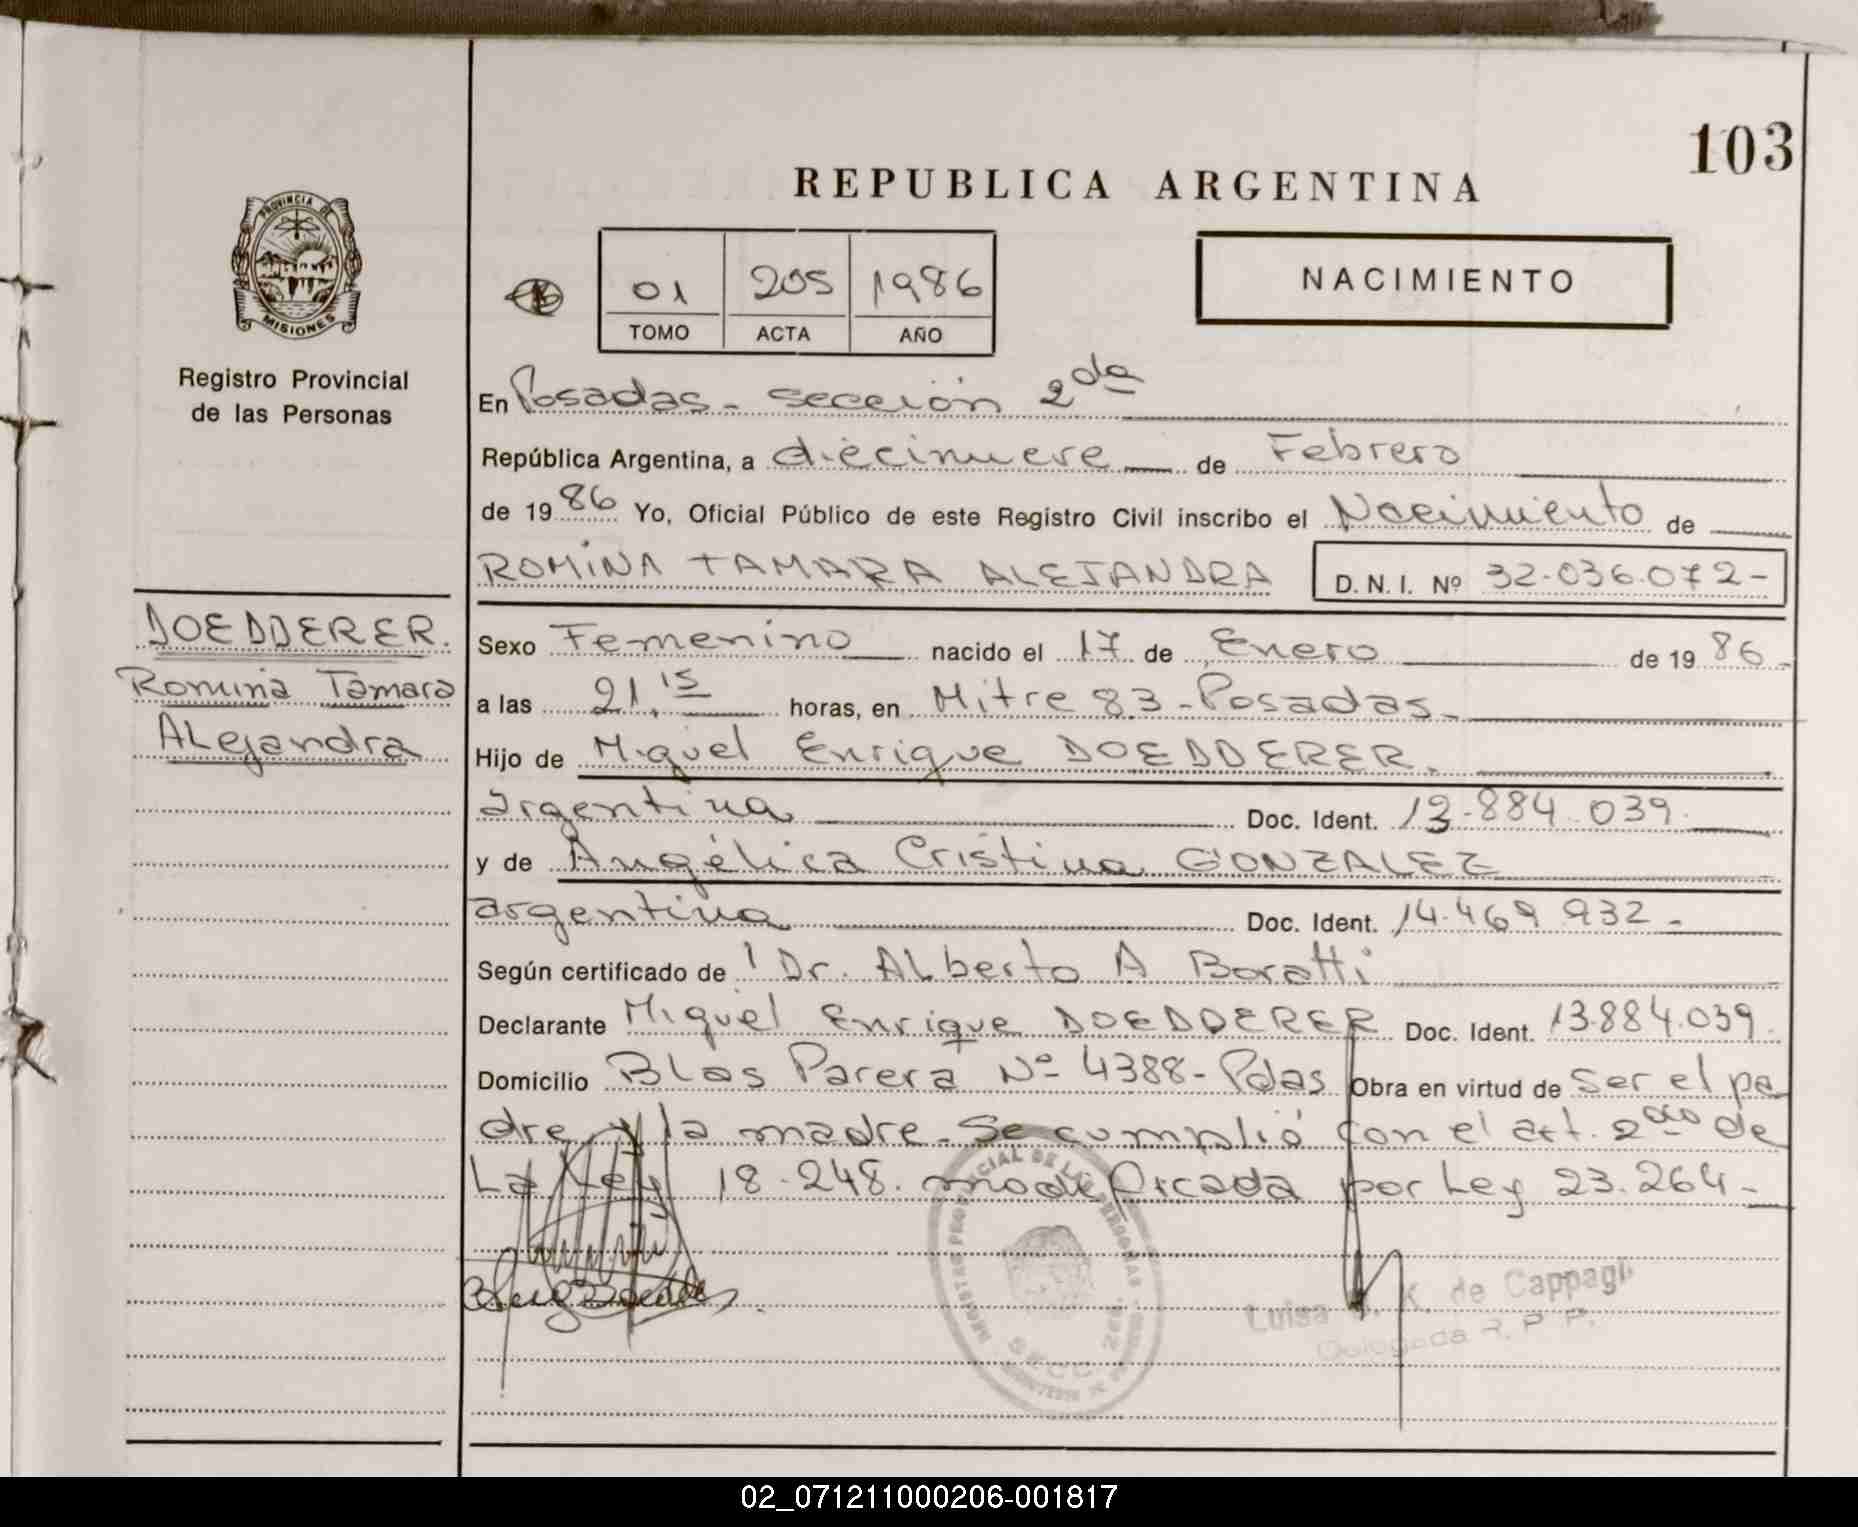 103
REPUBLICA ARGENTINA
PROVINCIA DE
MISIONES
Registro Provincial
de las Personas
01 205 1986
TOMO ACTA AÑO
NACIMIENTO
En Posadas - sección 2da
República Argentina, a diecinueve de Febrero
de 1986 Yo, Oficial Público de este Registro Civil inscribo el Nacimiento de
ROMINA TAMARA ALEJANDRA D. N. I. Nº 32.036.072-
DOEDDERER.
Romina Tamara
ALejandra
Sexo Femenino nacido el 17 de Enero de 1986-
a las 21.15 horas, en Mitre 83 - Posadas -
Hijo de Miguel Enrique DOEDDERER.
argentina Doc. Ident. 13.884.039.
y de Angélica Cristina GONZALEZ
argentina Doc. Ident. 14.469.932-
Según certificado de Dr. ALberto A Boratti
Declarante Miguel Enrique DOEDDERER Doc. Ident. 13.884.039.
Domicilio BLas Parera Nº 4388- Pdas Obra en virtud de ser el pa
dre y la madre. Se cumplió con el art. 2do de
La Ley 18.248. modificada por Ley 23.264-
Luisa K. de Cappagli
Delegada R. P. P.
02_071211000206-001817